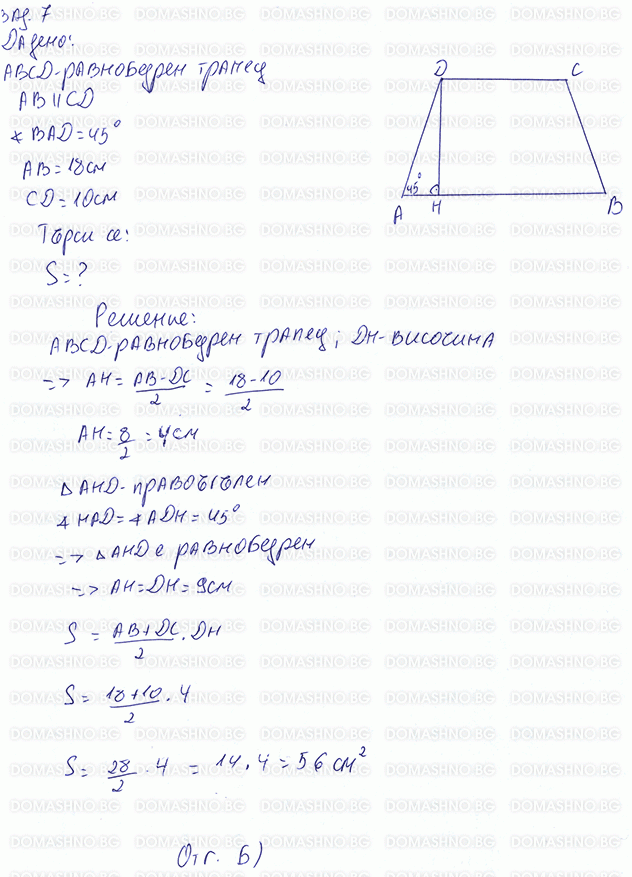 Зад. 7
Дадено:
ABCD-равнобедрен трапец
AB || CD
∢ BAD = 45°
AB = 18см
CD = 10см
Търси се:
S = ?
D C
45°
A H B
Решение:
ABCD-равнобедрен трапец; DH-височина
=> AH = (AB - DC)/2 = (18 - 10)/2
AH = 8/2 = 4см
△AHD-правоъгълен
∢ HAD = ∢ ADH = 45°
=> △AHD е равнобедрен
=> AH = DH = 9см
S = (AB + DC)/2 . DH
S = (18 + 10)/2 . 4
S = 28/2 . 4 = 14 . 4 = 56 см²
Отг. Б)
DOMASHNO.BG